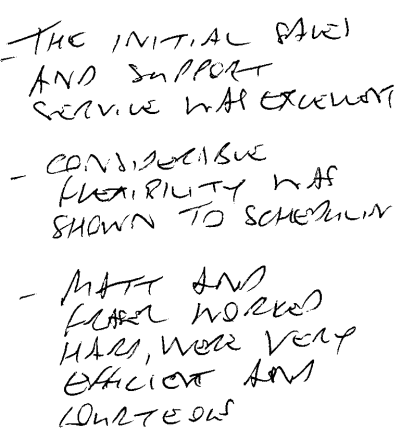 - THE INITIAL SALES
AND SUPPORT
SERVICE WAS EXCELLENT
- CONSIDERABLE
FLEXIBILITY WAS
SHOWN TO SCHEDULIN
- MATT AND
FRASER WORKED
HARD, WERE VERY
EFFICIENT AND
COURTEOUS